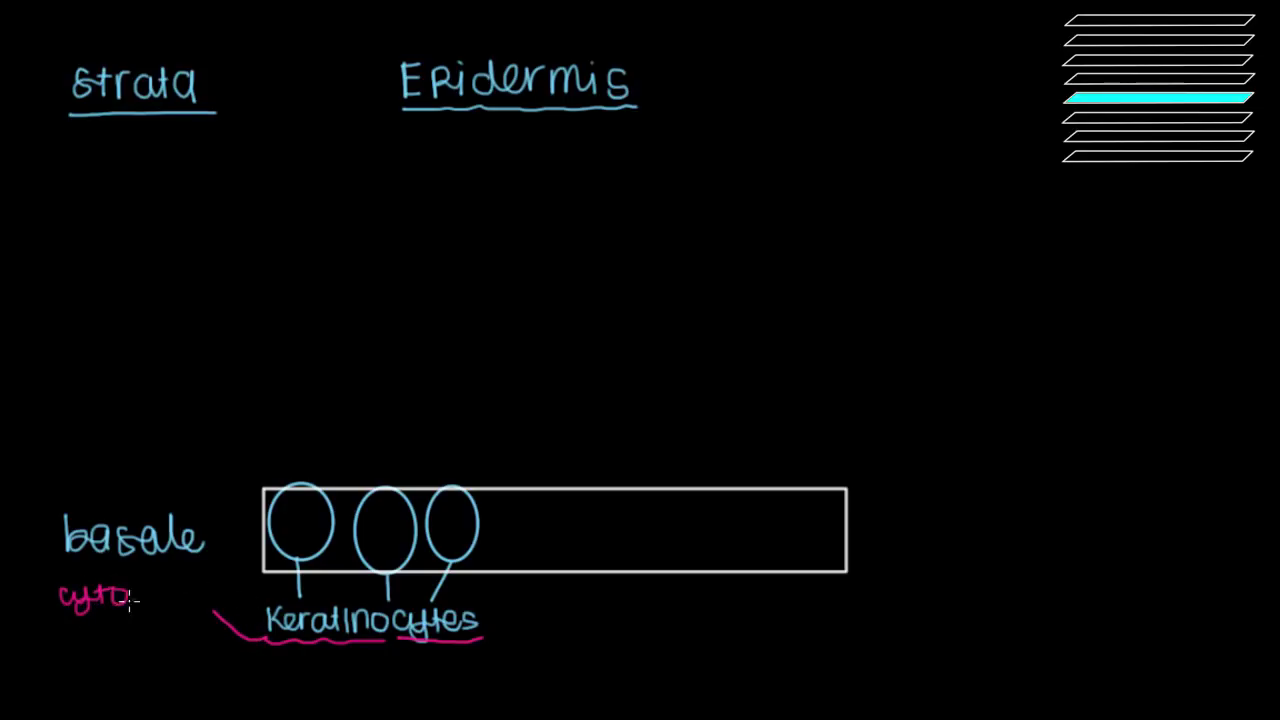 strata
Epidermis
basale
cyto
Keratinocytes